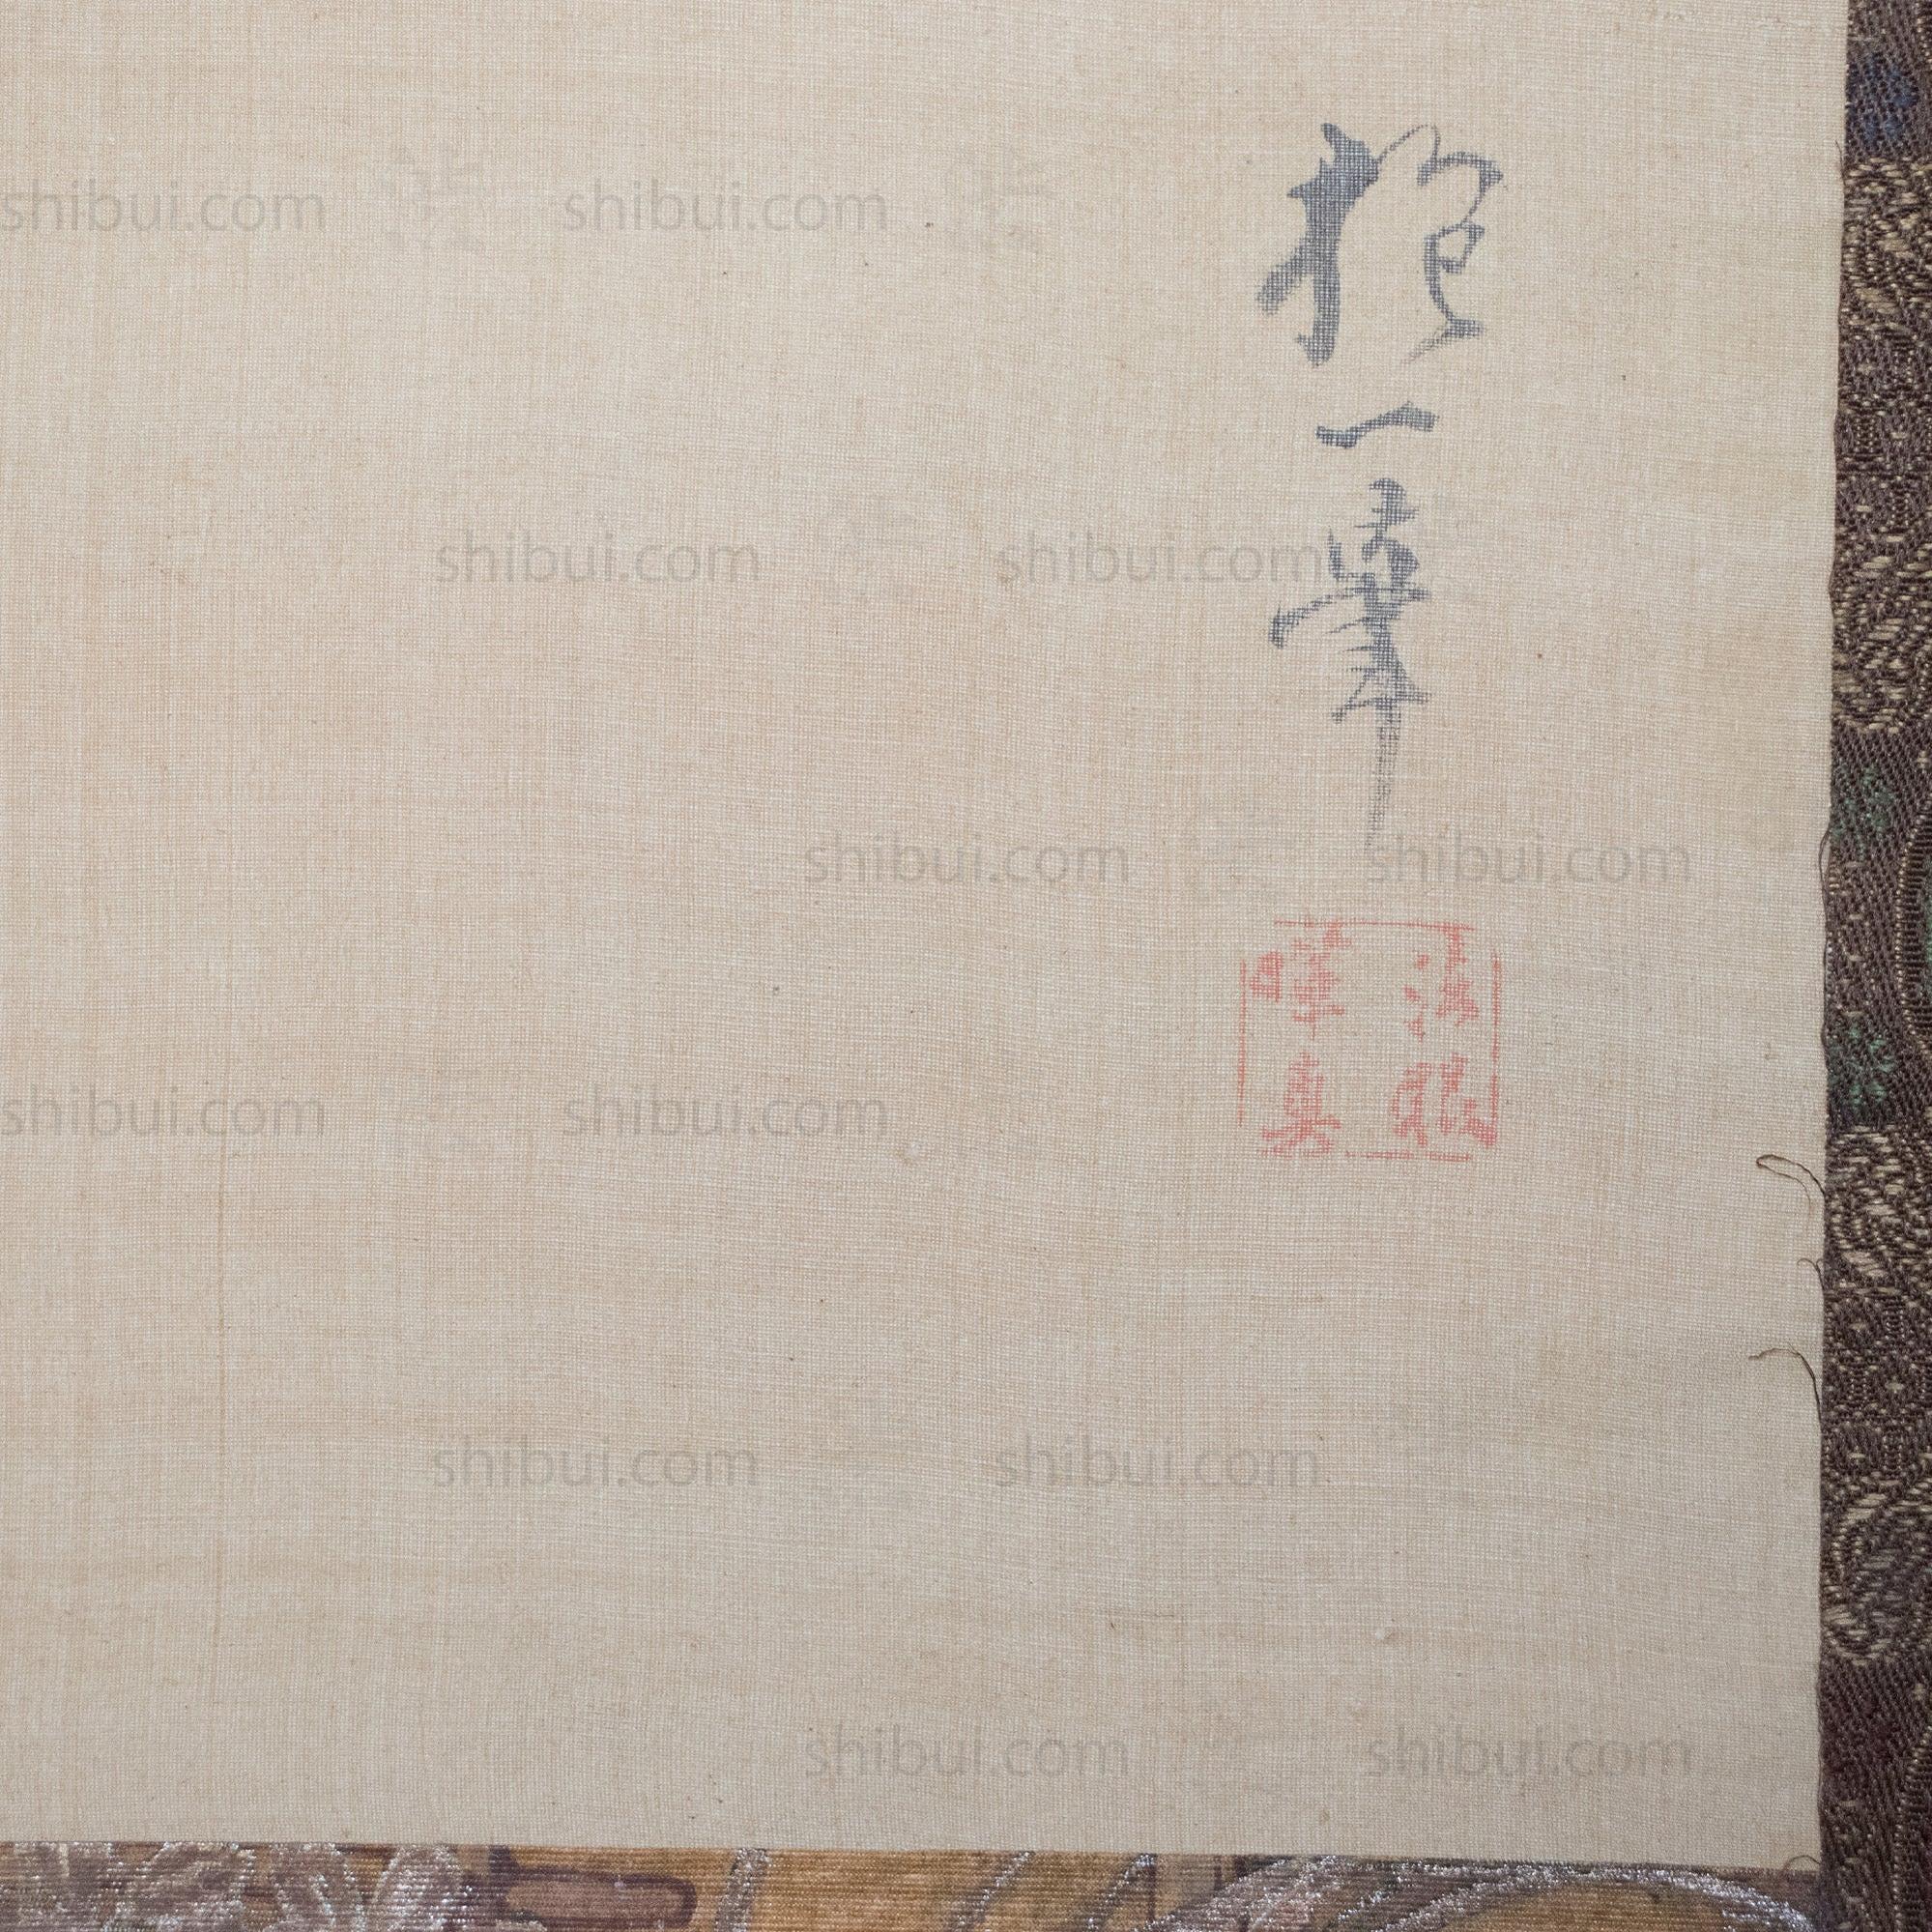 抱一筆
法眼
暉真
shibui.com
shibui.com
shibui.com
shibui.com
shibui.com
shibui.com
shibui.com
shibui.com
shibui.com
shibui.com
shibui.com
shibui.com